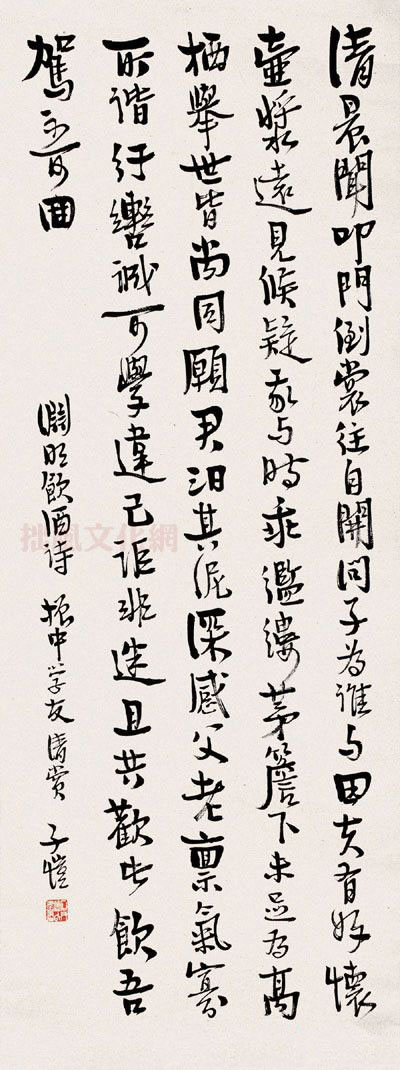 清晨聞叩門倒裳往自開問子為誰与田父有好懷
壺漿遠見候疑我与時乖襤縷茅簷下未足為高
栖舉世皆尚同願君汩其泥深感父老稟氣寡
所諧紆轡誠可學違己詎非迷且共歡此飲吾
駕不可囬
淵明飲酒詩 振中学友清赏 子愷
拙風文化網